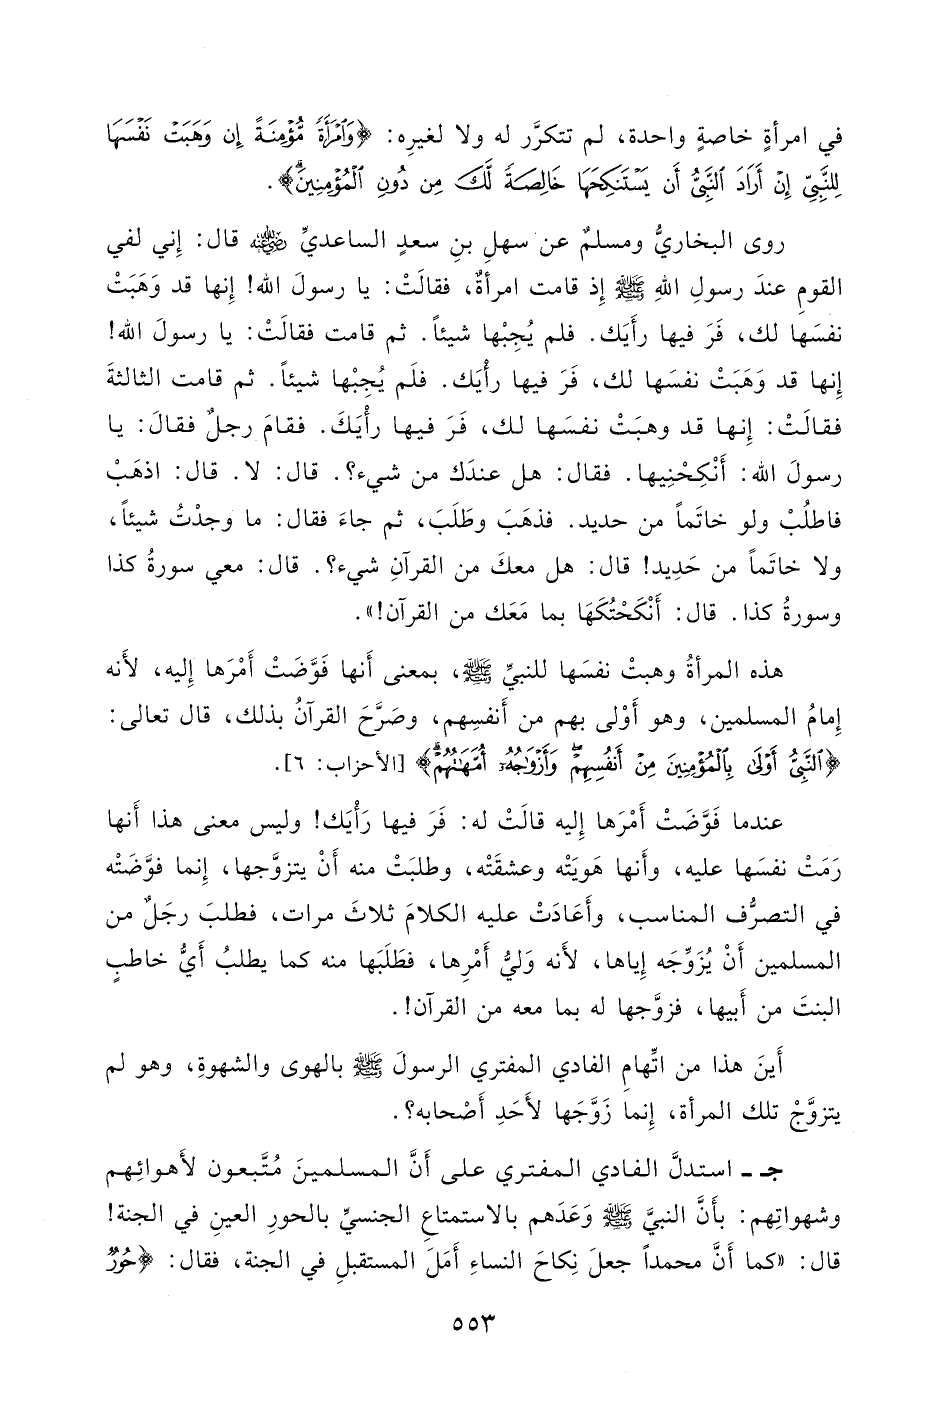 في امرأةٍ خاصةٍ واحدة، لم تتكرَّر له ولا لغيرِه: ﴿وَٱمْرَأَةً مُّؤْمِنَةً إِن وَهَبَتْ نَفْسَهَا
لِلنَّبِيِّ إِنْ أَرَادَ ٱلنَّبِيُّ أَن يَسْتَنكِحَهَا خَالِصَةً لَّكَ مِن دُونِ ٱلْمُؤْمِنِينَۗ﴾.
روى البخاريُّ ومسلمٌ عن سهلِ بنِ سعدٍ الساعديِّ رضي الله عنه قال: إني لفي
القومِ عندَ رسولِ اللهِ ﷺ إذ قامت امرأةٌ، فقالَتْ: يا رسولَ الله! إنها قد وَهَبَتْ
نفسَها لك، فَرَ فيها رأيَك. فلم يُجِبْها شيئاً. ثم قامت فقالَتْ: يا رسولَ الله!
إنها قد وَهَبَتْ نفسَها لك، فَرَ فيها رأْيَك. فلَم يُجِبْها شيئاً. ثم قامت الثالثةَ
فقالَتْ: إنها قد وهبَتْ نفسَها لك، فَرَ فيها رأْيَكَ. فقامَ رجلٌ فقالَ: يا
رسولَ الله: أَنْكِحْنِيها. فقال: هل عندَك من شيء؟. قال: لا. قال: اذهَبْ
فاطلُبْ ولو خاتَماً من حديد. فذهَبَ وطَلَبَ، ثم جاءَ فقال: ما وجدْتُ شيئاً،
ولا خاتَماً من حَدِيد! قال: هل معكَ من القرآنِ شيء؟. قال: معي سورةُ كذا
وسورةُ كذا. قال: أَنْكَحْتُكَهَا بما مَعَك من القرآن!».
هذه المرأةُ وهبتْ نفسَها للنبيِّ ﷺ، بمعنى أنها فَوَّضَتْ أَمْرَها إليه، لأَنه
إمامُ المسلمين، وهو أَوْلى بهم من أَنفسِهم، وصَرَّحَ القرآنُ بذلك، قال تعالى:
﴿ٱلنَّبِيُّ أَوْلَىٰ بِٱلْمُؤْمِنِينَ مِنْ أَنفُسِهِمْۖ وَأَزْوَٰجُهُۥٓ أُمَّهَٰتُهُمْۗ﴾ [الأحزاب: ٦].
عندما فَوَّضَتْ أَمْرَها إليه قالَتْ له: فَرَ فيها رَأْيَك! وليس معنى هذا أنها
رَمَتْ نفسَها عليه، وأَنها هَوِيَتْه وعشقَتْه، وطلبَتْ منه أَنْ يتزوَّجها، إنما فوَّضَتْه
في التصرُّف المناسب، وأَعَادَتْ عليه الكلامَ ثلاثَ مرات، فطلبَ رَجلٌ من
المسلمين أَنْ يُزَوِّجَه إياها، لأَنه وَليُّ أَمْرِها، فطَلَبَها منه كما يطلبُ أَيُّ خاطبٍ
البنتَ من أَبيها، فزوَّجها له بما معه من القرآن!.
أَينَ هذا من اتِّهامِ الفادي المفتري الرسولَ ﷺ بالهوى والشهوةِ، وهو لم
يتزوَّجْ تلك المرأة، إنما زَوَّجَها لأَحَدِ أَصْحابه؟.
جـ ـ استدلَّ الفادي المفتري على أنَّ المسلمينَ مُتَّبعون لأَهوائِهم
وشهواتِهم: بأَنَّ النبيَّ ﷺ وَعَدَهم بالاستمتاعِ الجنسيِّ بالحورِ العينِ في الجنة!
قال: «كما أَنَّ محمداً جعلَ نِكاحَ النساءِ أَمَلَ المستقبلِ في الجنة، فقال: ﴿حُورٌ
٥٥٣